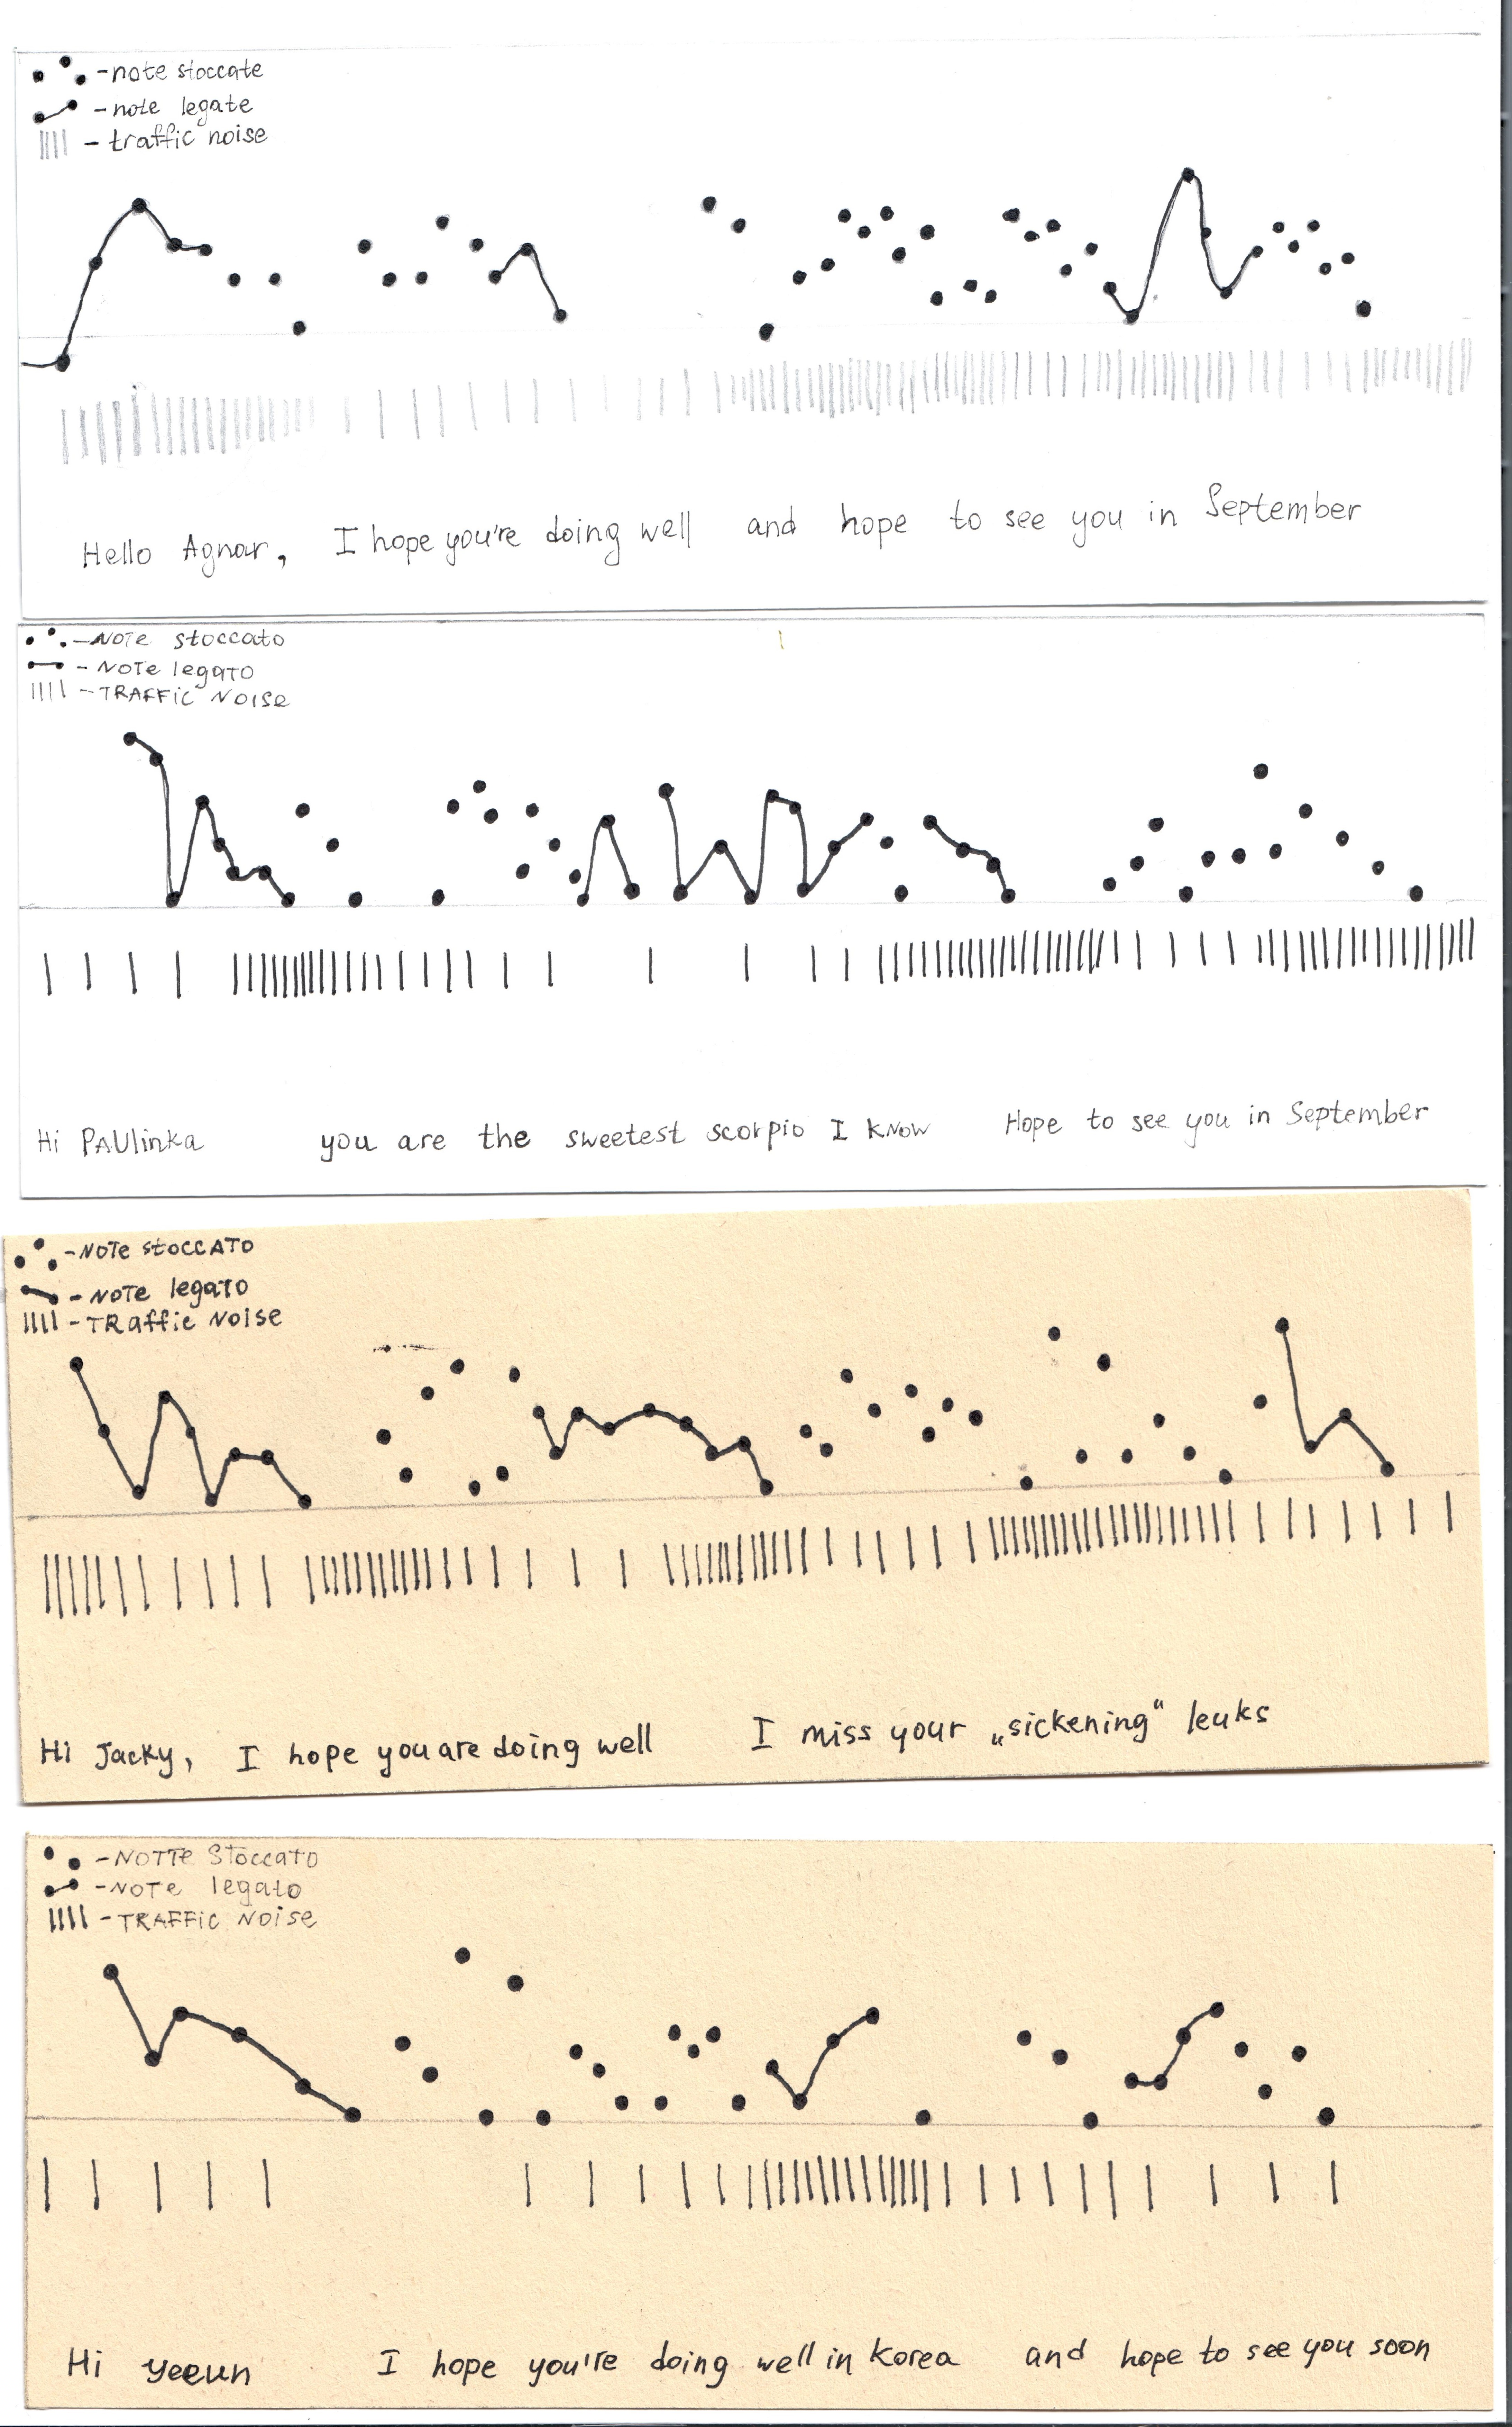 - note stoccate
- note legate
- traffic noise
Hello Agnar, I hope you're doing well and hope to see you in September
- NOTe stoccato
- NOTe legATO
- TRAFFiC NOISe
Hi PAUlinka you are the sweetest scorpio I KNOW Hope to see you in September
- NOTe stoCCATO
- NOTe legATO
- TRaffic NOISe
Hi Jacky, I hope you are doing well I miss your „sickening“ leuks
- NOTTe Stoccato
- NOTe legato
- TRAFFiC NOise
Hi yeeun I hope you're doing well in Korea and hope to see you soon